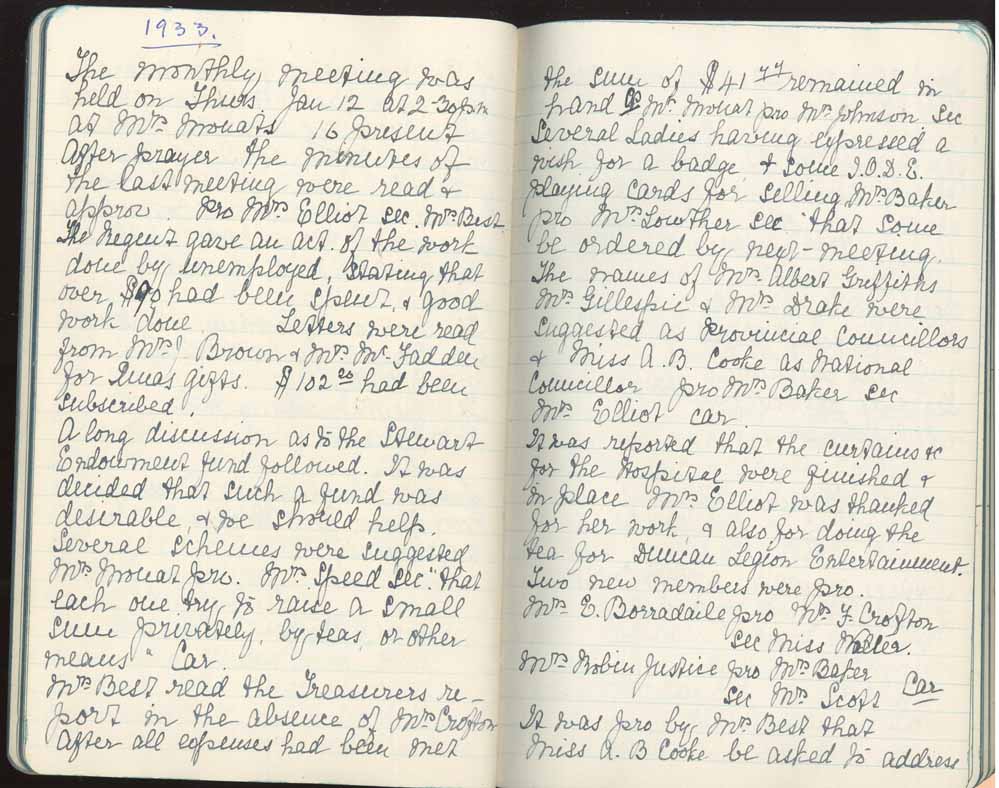 1933.
The monthly meeting was
held on Thurs. Jan 12 at 2-30pm
at Mrs Mouats 16 present
After prayer the minutes of
the last meeting were read &
approv. Pro Mrs Elliot sec. Mrs Best
The Regent gave an act. of the work
done by unemployed, stating that
over $90 had been spent, & good
work done Letters were read
from Mrs Brown & Mrs McFadden
for Xmas gifts. $102 20 had been
subscribed.
A long discussion as to the Stewart
Endowment fund followed. It was
decided that such a fund was
desirable, & we should help.
Several schemes were suggested
Mrs Mouat pro. Mrs Speed sec "that
each one try to raise a small
sum privately, by teas, or other
means" Car.
Mrs Best read the Treasurers re-
port in the absence of Mrs Crofton
After all expenses had been met
the sum of $41 77 remained in
hand Mrs Mouat pro Mrs Johnson sec
Several Ladies having expressed a
wish for a badge & some I.O.D.E.
playing cards for selling Mrs Baker
pro Mrs Lowther sec "that some
be ordered by next-meeting.
The names of Mrs Albert Griffiths
Mrs Gillespie & Mrs Drake were
suggested as Provincial Councillors
& Miss A. B. Cooke as National
Councillor pro Mrs Baker sec
Mrs Elliot car.
It was reported that the curtains &c
for the Hospital were finished &
in place Mrs Elliot was thanked
for her work, & also for doing the
tea for Duncan Legion Entertainment.
Two new members were pro.
Mrs E. Borradaile pro Mrs F. Crofton
sec Miss
Mrs Robin Justice pro Mrs Baker
sec Mrs Scott Car
It was pro by Mrs Best that
Miss A. B Cooke be asked to address